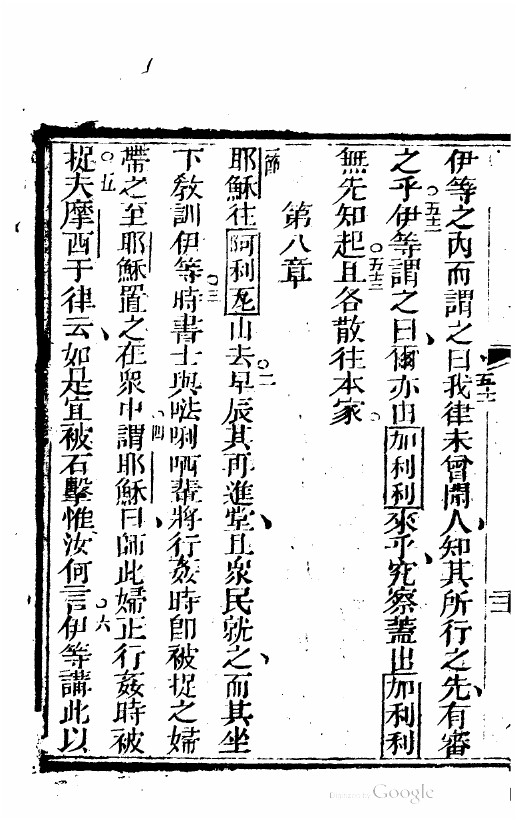 伊等之內而謂之曰我律未曾聞人知其所行之先有審
之乎伊等謂之曰爾亦由加利利來乎究察蓋出加利利
無先知起且各散往本家
第八章
耶穌往阿利瓦山去早辰其再進堂且衆民就之而其坐
下敎訓伊等時書士與𠵽唎哂輩將行姦時卽被捉之婦
帶之至耶穌置之在衆中謂耶穌曰師此婦正行姦時被
捉夫摩西于律云如是宜被石擊惟汝何言伊等講此以
五一
五二
五三
一節
二
三
四
五
六
Digitized by Google